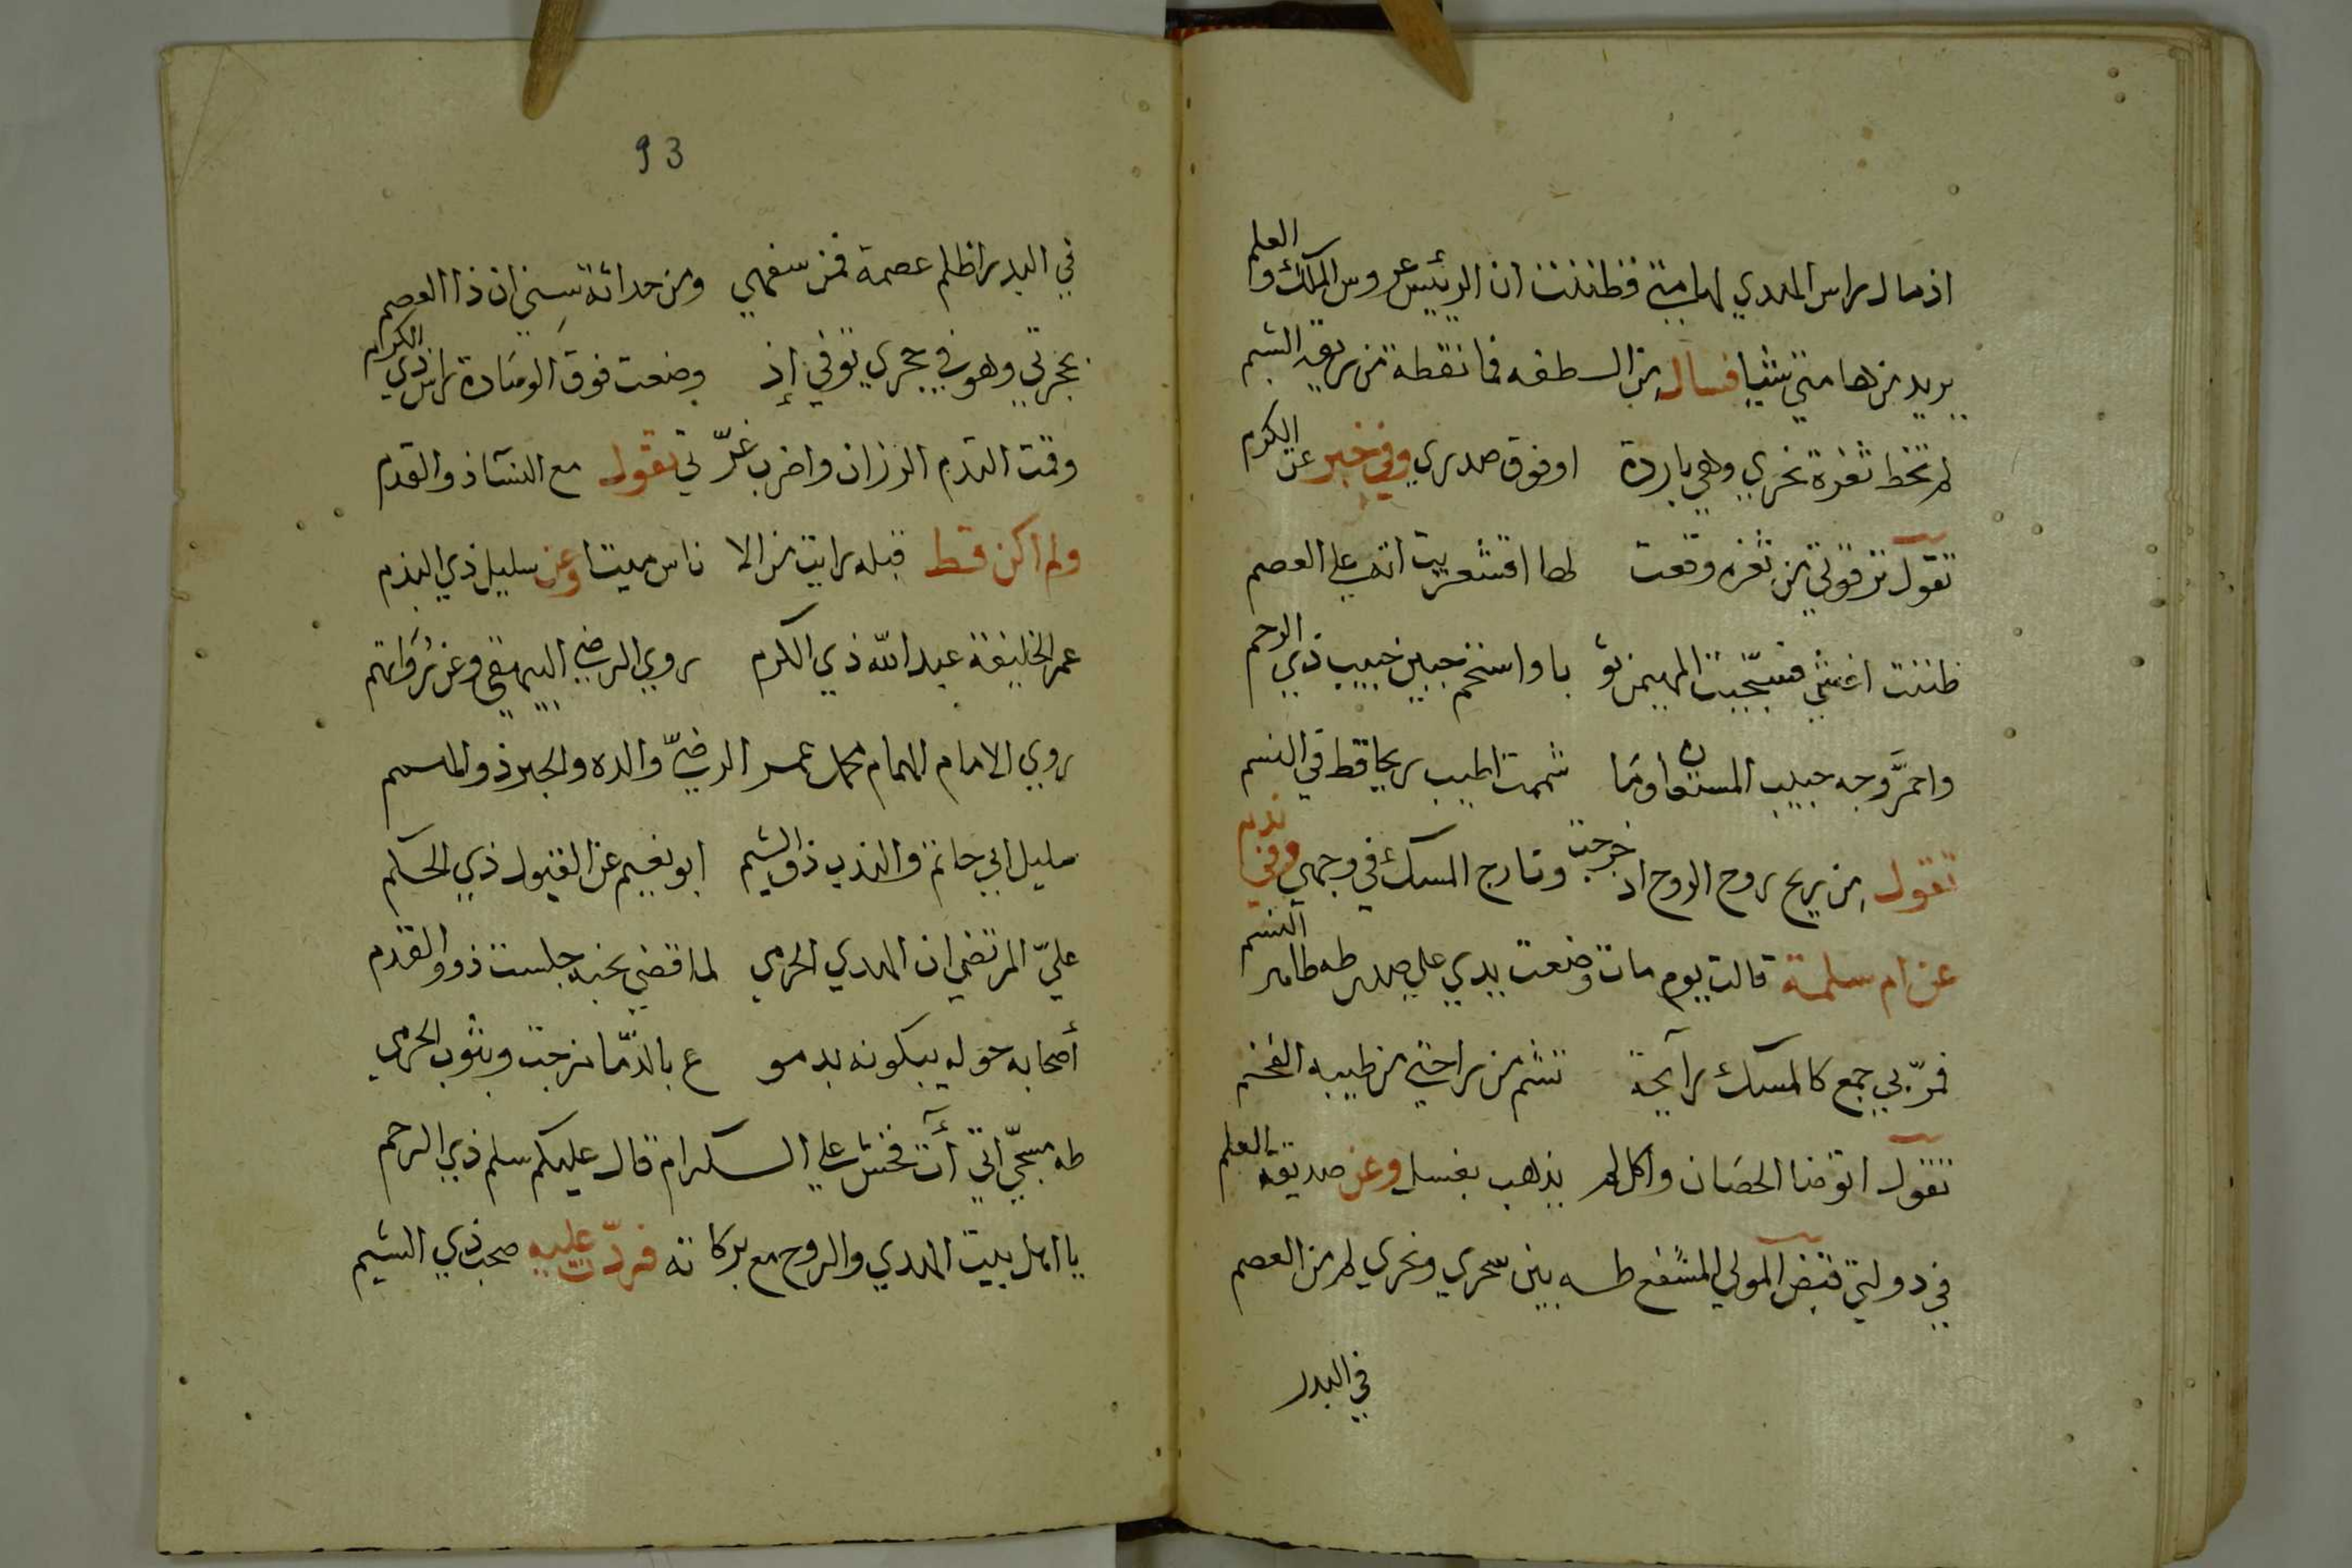 اذ مال راس الهدي لهامتي فظننت ان الرئيس عروس الملك والعلم
يريد من هامتي شيا فسال من السطفه فما نقطة من ريقه الشبم
لم تخط ثغرة نحري وهي باردة اوفوق صدري وفي خبر عن الكرم
تقول ترقوتي من ثغره وقعت لها اقشعريت اتي على العصم
ظننت اغشي فسجيت المهيمن ثو با واستخم جبين حبيب ذي الرحم
واحمر وجه حبيب المستعان وما شممت اطيب ريحا قط في النسم
تقول من ريح روح الروح اذ خرجت وتارج المسك في وجهي وفي ندم
عن ام سلمة قالت يوم مات وضعت يدي علي صدر طه طاهر النسم
فمر بي جمع كالمسك رآيحة تشم من راحتي من طيبه الفخم
تقول اتوضا الحصان واكل لم يذهب بغسل وعن صديقه العلم
في دولتي قبض المولي المشفع طه بين سحري ونحري لم من العصم
في البدر
93
في البدر اظلم عصمة فمن سفهي ومن حداثة سني ان ذا العصم
بحجرتي وهو في حجري توفي إذ وضعت فوق الوسادة راس ذي الكرام
وقمت التدم الرزان واضرب غر تي تقول مع النسآ ذو القدم
ولم اكن قط قبله رايت من الا ناس ميتا وعن سليل ذي الهذم
عمر الخليفة عبد الله ذي الكرم روي الرضي البيهقي وعن رواتهم
روي الامام الهمام محمد عمر الرضي والده والحبر ذو الهمم
سليل ابي حاتم والندب ذو الشيم ابو نعيم عن القيول ذي الحكم
علي المرتضي ان الهدي الحرمي لما قضي نحبه جلست ذوو القدم
أصحابه حوله يبكونه بدمو ع بالدما مزجت وبثوب الحرمي
طه مسجي اتي أت فخش على السكرام قال عليكم سلم ذي الرحم
يا اهل بيت الهدي والروح مع بركا ته فردت عليه صحب ذي الشيم